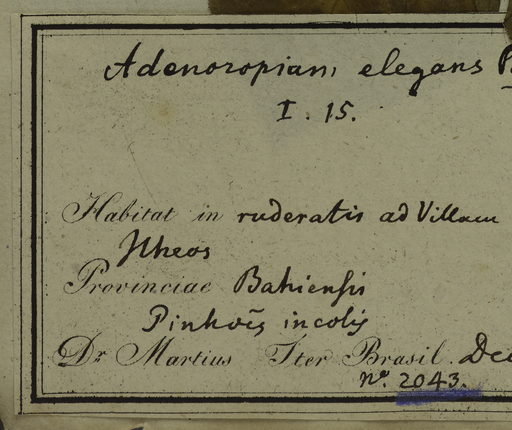 Adenoropium elegans
I. 15.
Habitat in ruderatis ad Villam
Ilheos
Provinciae Bahiensis
Pinhoēs incolis
Dr Martius Iter Brasil. Dec
no. 2043.